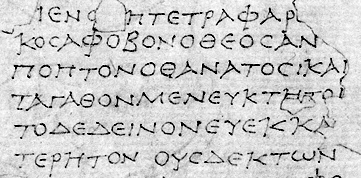 ΙΕΝΟ ΗΤΕΤΡΑΦΑΡΙ
ΚΟϹΑΦΟΒΟΝΟΘΕΟϹΑΝ
ΠΟΠΤΟΝΟΘΑΝΑΤΟϹΚΑΙ
ΤΑΓΑΘΟΝΜΕΝΕΥΚΤΗΤΟΙ
ΤΟΔΕΔΕΙΝΟΝΕΥΕΚΚΑ
ΤΕΡΗΤΟΝ ΟΥϹΔΕΚΤΩΝ